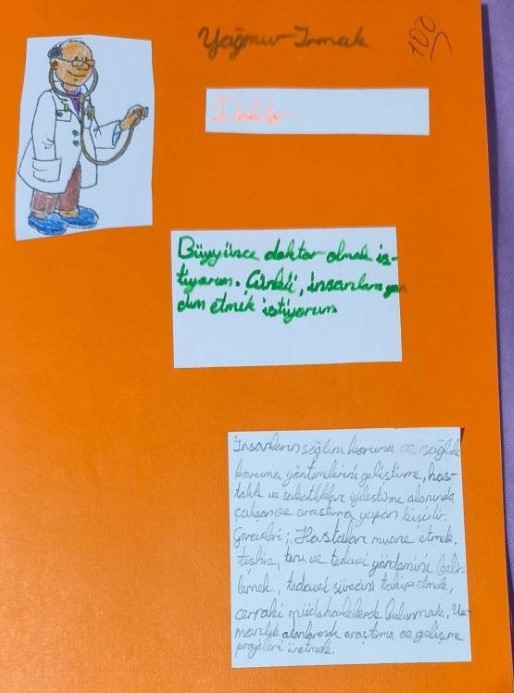 Yağmur Irmak
100
Doktor
Büyüyünce doktor olmak is-
tiyorum. Çünkü, insanlara yar
dım etmek istiyorum
İnsanların sağlını koruma ve sağlık
koruma yöntemlerini geliştirme, has-
talık ve sakatlıkları iyileştirme alanında
çalışan ve araştırma yapan kişidir.
Görevleri; Hastaları muane etmek,
teshis, tanı ve tedavi yöntemini belir-
lemek, tedavi sürecini takip etmek,
cerrahi müdahalelerde bulunmak, Uz-
manlık alanlarında araştırma ve gelişme
projeleri üretmek.